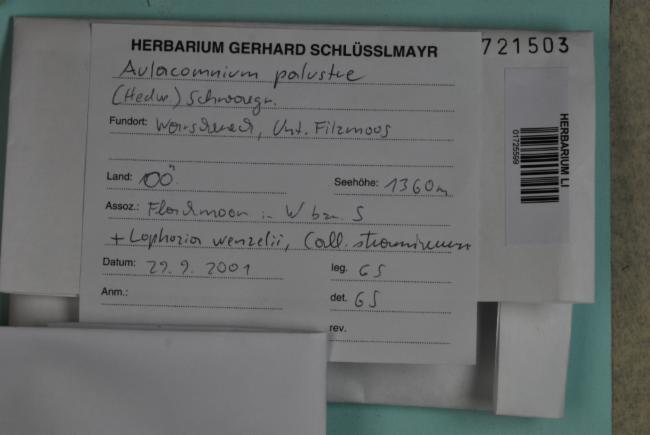 HERBARIUM GERHARD SCHLÜSSLMAYR
721503
Aulacomnium palustre
(Hedw.) Schwaegr.
Fundort: Warscheneck, Unt. Filzmoos
Land: OÖ
Seehöhe: 1360m
Assoz.: Flachmoor in W bzw. S
+ Lophozia wenzelii, Call. stramineum
Datum: 29. 9. 2001
leg. GS
Anm.:
det. GS
rev.
HERBARIUM LI
01725599